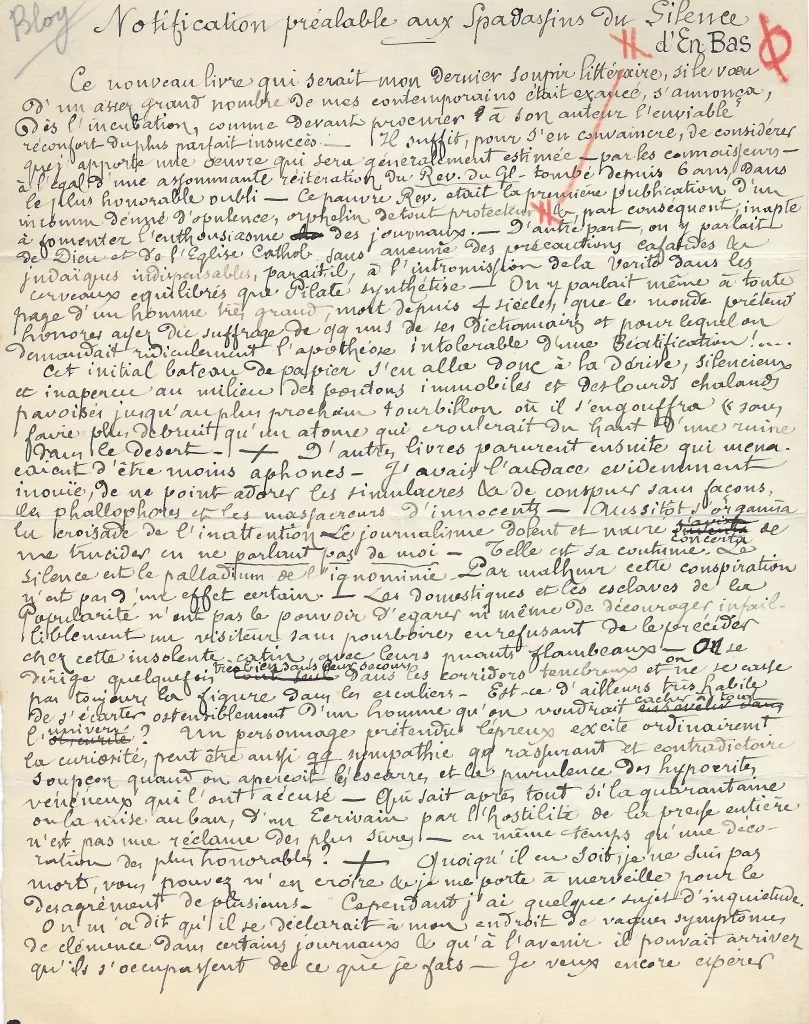 Bloy
Notification préalable aux Spadassins du Silence
d'En Bas
Ce nouveau livre qui serait mon dernier soupir littéraire, si le vœu
d'un assez grand nombre de mes contemporains était exaucé, s'annonça,
dès l'incubation, comme devant procurer à son auteur l'enviable
réconfort du plus parfait insuccès. — Il suffit, pour s'en convaincre, de considérer
que j'apporte une œuvre qui sera généralement estimée — par les connoisseurs —
à l'égal d'une assommante réitération du Rev. du Gl. tombé depuis 6 ans, dans
le plus honorable oubli — Ce pauvre Rev. était la première publication d'un
inconnu dénué d'opulence, orphelin de tout protecteur & par conséquent, inapte
à fomenter l'enthousiasme des journaux. — D'autre part, on y parlait
de Dieu et de l'Eglise Cathol. sans aucune des précautions cafardes ou
judaïques indispensables, paraît-il, à l'intromission de la Vérité dans les
cerveaux équilibrés que Pilate synthétise — On y parlait même à toute
page d'un homme très grand, mort depuis 4 siècles, que le monde prétend
honorer avec du suffrage de qq uns de ses Dictionnaires et pour lequel on
demandait ridiculement l'apothéose intolérable d'une Béatification !....
Cet initial bateau de papier s'en alla donc à la dérive, silencieux
et inaperçu au milieu des pontons immobiles et des lourds chalands
pavoisés jusqu'au plus prochain tourbillon où il s'engouffra sans
faire plus de bruit qu'un atome qui croulerait du haut d'une ruine
dans le désert — + D'autres livres parurent ensuite qui mena-
çaient d'être moins aphones — J'avais l'audace évidemment
inouïe, de ne point adorer les simulacres & de conspuer sans façons,
les phallophores et les massacreurs d'innocents — Aussitôt s'organisa
la croisade de l'inattention. Le journalisme dolent et navré
concerta de
me trucider en ne parlant pas de moi — Telle est sa coutume. Le
silence est le palladium de l'ignominie. Par malheur cette conspiration
n'est pas d'un effet certain. — Les domestiques et les esclaves de la
Popularité n'ont pas le pouvoir d'égarer ni même de décourager infail-
liblement un visiteur sans pourboires en refusant de le précéder
chez cette insolente catin avec leurs puants flambeaux — On se
dirige quelquefois très bien sans leur secours dans les corridors ténébreux et on ne se casse
pas toujours la figure dans les escaliers — Est-ce d'ailleurs très habile
de s'écarter ostensiblement d'un homme qu'on voudrait cacher à tout
l'univers ? Un personnage prétendu lépreux excite ordinairement
la curiosité, peut être aussi qq sympathie qq rassurant et contradictoire
soupçon quand on aperçoit les escarres et la purulence des hypocrites
vénéneux qui l'ont accusé — Qui sait après tout si la quarantaine
ou la mise au ban, d'un Ecrivain par l'hostilité de la presse entière
n'est pas une réclame des plus sûres — en même temps qu'une déco-
ration des plus honorables ? — + Quoiqu'il en soit, je ne suis pas
mort, vous pouvez m'en croire & je me porte à merveille pour le
désagrément de plusieurs — Cependant j'ai quelque sujet d'inquiétude.
On m'a dit qu'il se déclarait à mon endroit de vagues symptômes
de clémence dans certains journaux & qu'à l'avenir il pouvait arriver
qu'ils s'occupassent de ce que je fais — Je veux encore espérer